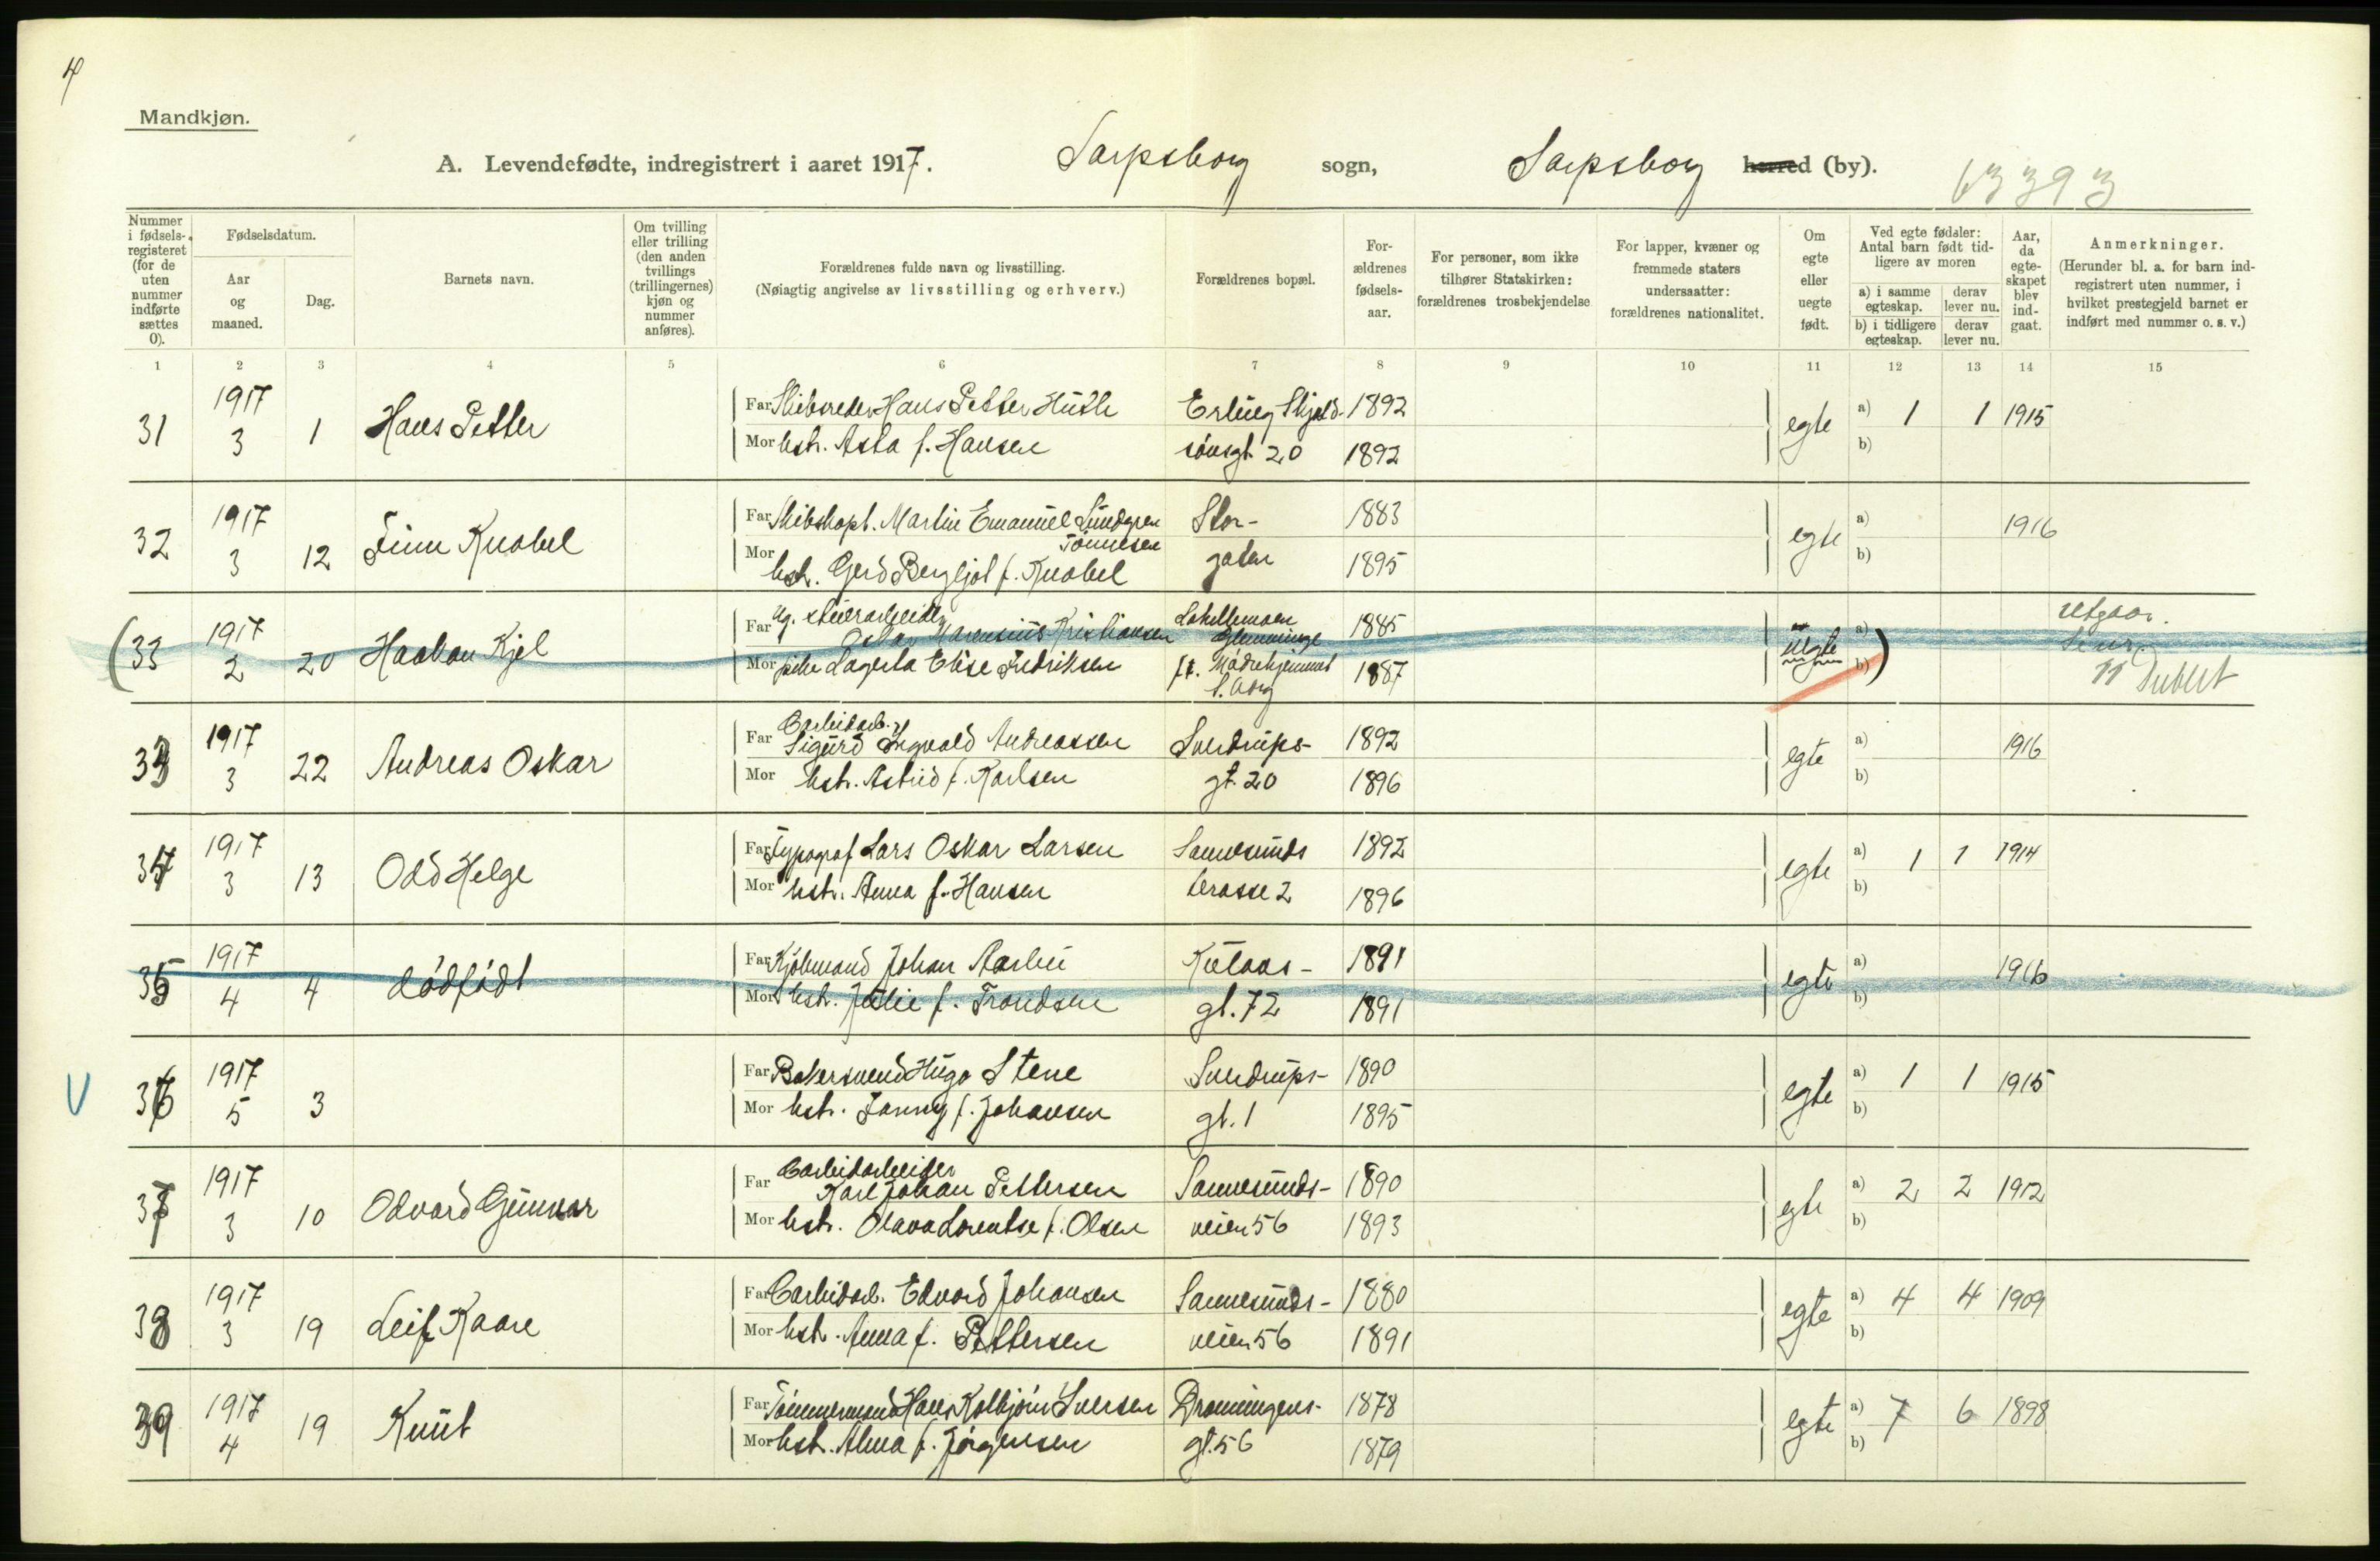 4
Mandkjøn.
A. Levendefødte, indregistrert i aaret 1917. Sarpsborg sogn, Sarpsborg herred (by). 63393
Nummer i fødselsregisteret (for de uten nummer indførte sættes 0).
Fødselsdatum.
Aar og maaned.
Dag.
Barnets navn.
Om tvilling eller trilling (den anden tvillings (trillingernes) kjøn og nummer anføres).
Forældrenes fulde navn og livsstilling.
(Nøiagtig angivelse av livsstilling og erhverv.)
Forældrenes bopæl.
Forældrenes fødselsaar.
For personer, som ikke tilhører Statskirken: forældrenes trosbekjendelse
For lapper, kvæner og fremmede staters undersaatter: forældrenes nationalitet.
Om egte eller uegte født.
Ved egte fødsler: Antal barn født tidligere av moren
a) i samme egteskap. derav lever nu.
b) i tidligere egteskap. derav lever nu.
Aar, da egteskapet blev indgaat.
Anmerkninger.
(Herunder bl. a. for barn indregistrert uten nummer, i hvilket prestegjeld barnet er indført med nummer o. s. v.)
1 2 3 4 5 6 7 8 9 10 11 12 13 14 15
31 1917 3 1 Hans Petter
Far Skibsreder Hans Petter Huth Erling Skjold- 1892
Mor hstr. Asta f. Hansen sönsgt. 20 1892
egte a) 1 1 1915
b)
32 1917 3 12 Finn Knobel
Far Skibskapt. Martin Emanuel Lundgren Tönnesen Stor- 1883
Mor hstr. Gerd Bergljot f. Knobel gaten 1895
egte a) 1916
b)
33 1917 2 20 Haakon Kjel
Far Ug. Oskar Marensius Kristiansen Glemminge 1885
Mor pike Lagerta Elise Fredriksen Mödrehjemmet S.borg 1887
uegte a)
b)
utgaar.
33 1917 3 22 Andreas Oskar
Far Carbidarb. Sigurd Ingvald Andreassen Sverdrups- 1892
Mor hstr. Astrid f. Karlsen gt. 20 1896
egte a) 1916
b)
34 1917 3 13 Odd Helge
Far Typograf Lars Oskar Larsen Sannesunds 1892
Mor hstr. Anna f. Hansen terasse 2 1896
egte a) 1 1 1914
b)
35 1917 4 4 dödfödt
Far Kjöbmand Johan Aarlie Kulaas- 1891
Mor hstr. Julie f. Trondsen gt. 72 1891
egte a) 1916
b)
V
36 1917 5 3
Far Bakersvend Hugo Stene Sverdrups- 1890
Mor hstr. Fanny f. Johansen gt. 1 1895
egte a) 1 1 1915
b)
37 1917 3 10 Odvard Gunnar
Far Carbidarbeider Karl Johan Pettersen Sannesunds- 1890
Mor hstr. Olava Lorentse f. Olsen veien 56 1893
egte a) 2 2 1912
b)
38 1917 3 19 Leif Kaare
Far Carbidarb. Edvard Johansen Sannesunds- 1880
Mor hstr. Anna f. Pettersen veien 56 1891
egte a) 4 4 1909
b)
39 1917 4 19 Knut
Far Tömmermand Hans Kolbjörn Iversen Dronningens- 1878
Mor hstr. Alma f. Jörgensen gt. 56 1879
egte a) 7 6 1898
b)